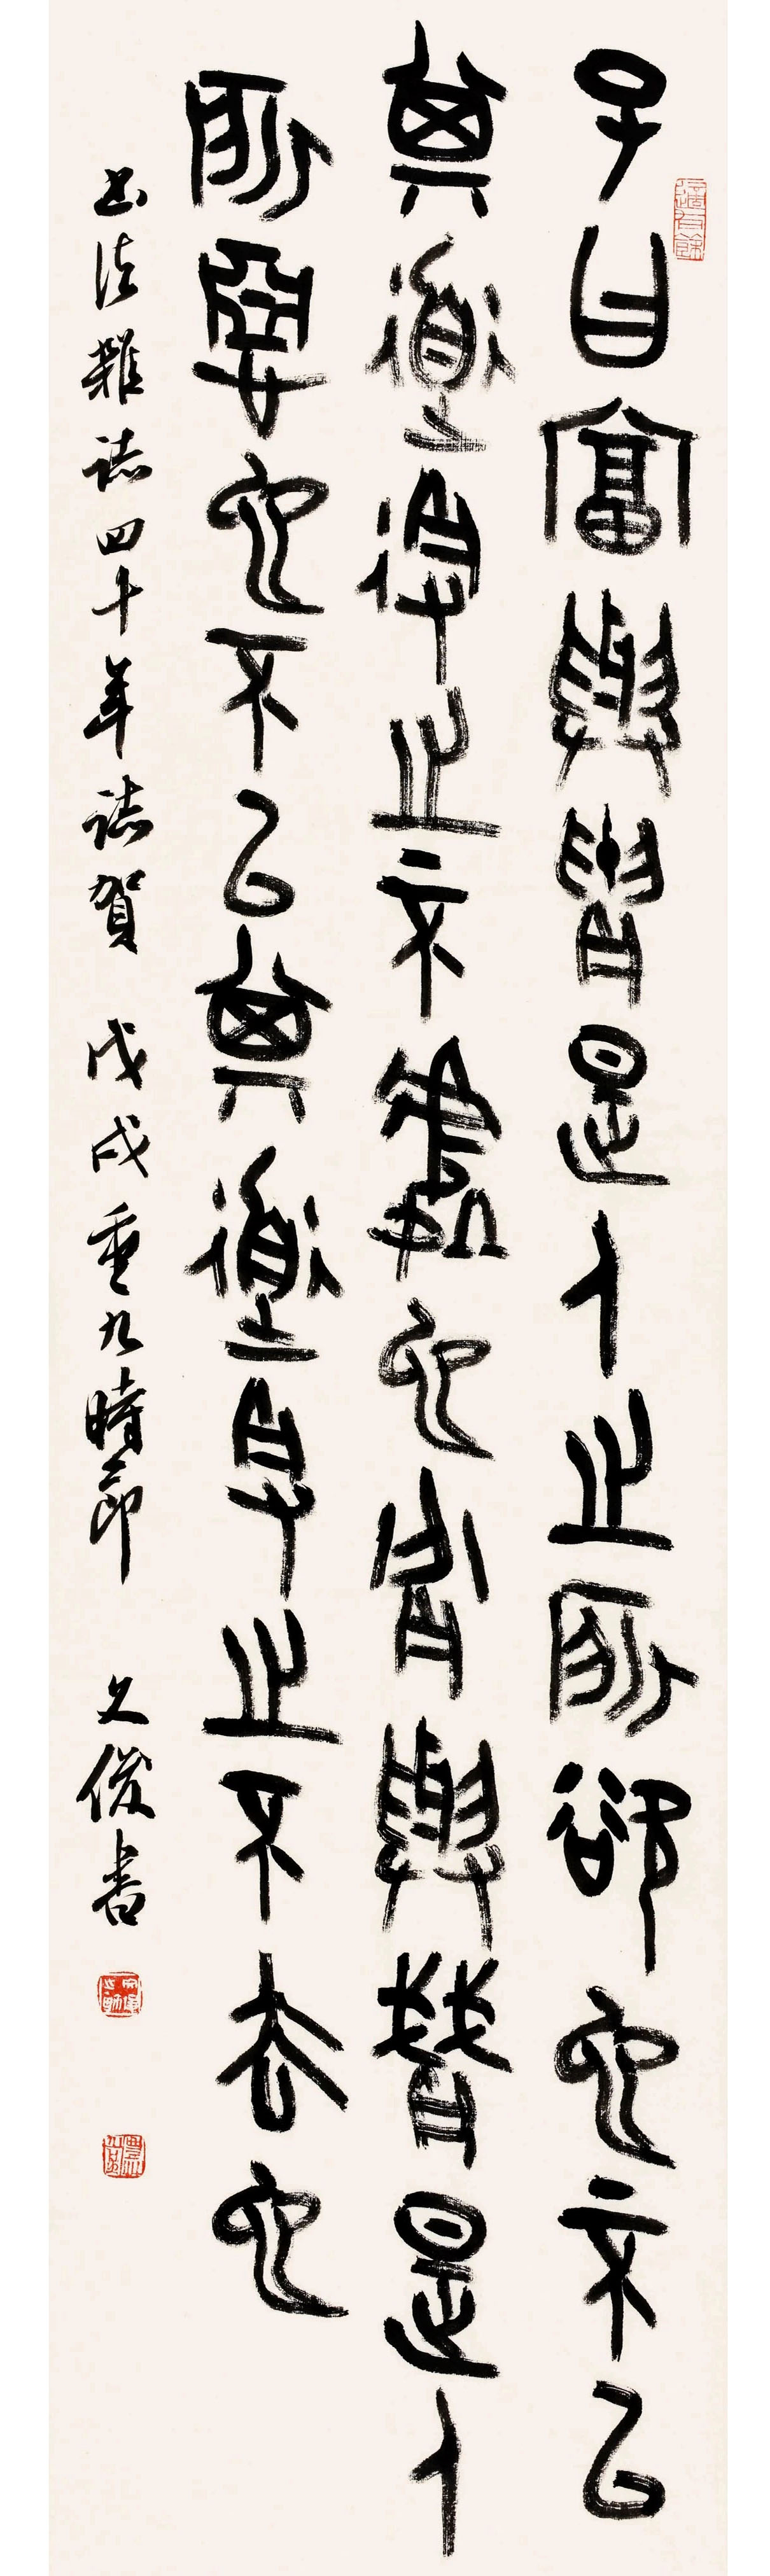 子曰富與貴是人之所欲也不以
其道得之不處也貧與賤是人
所惡也不以其道得之不去也
書法雜誌四十年誌賀 戊戌重九時節 文俊書